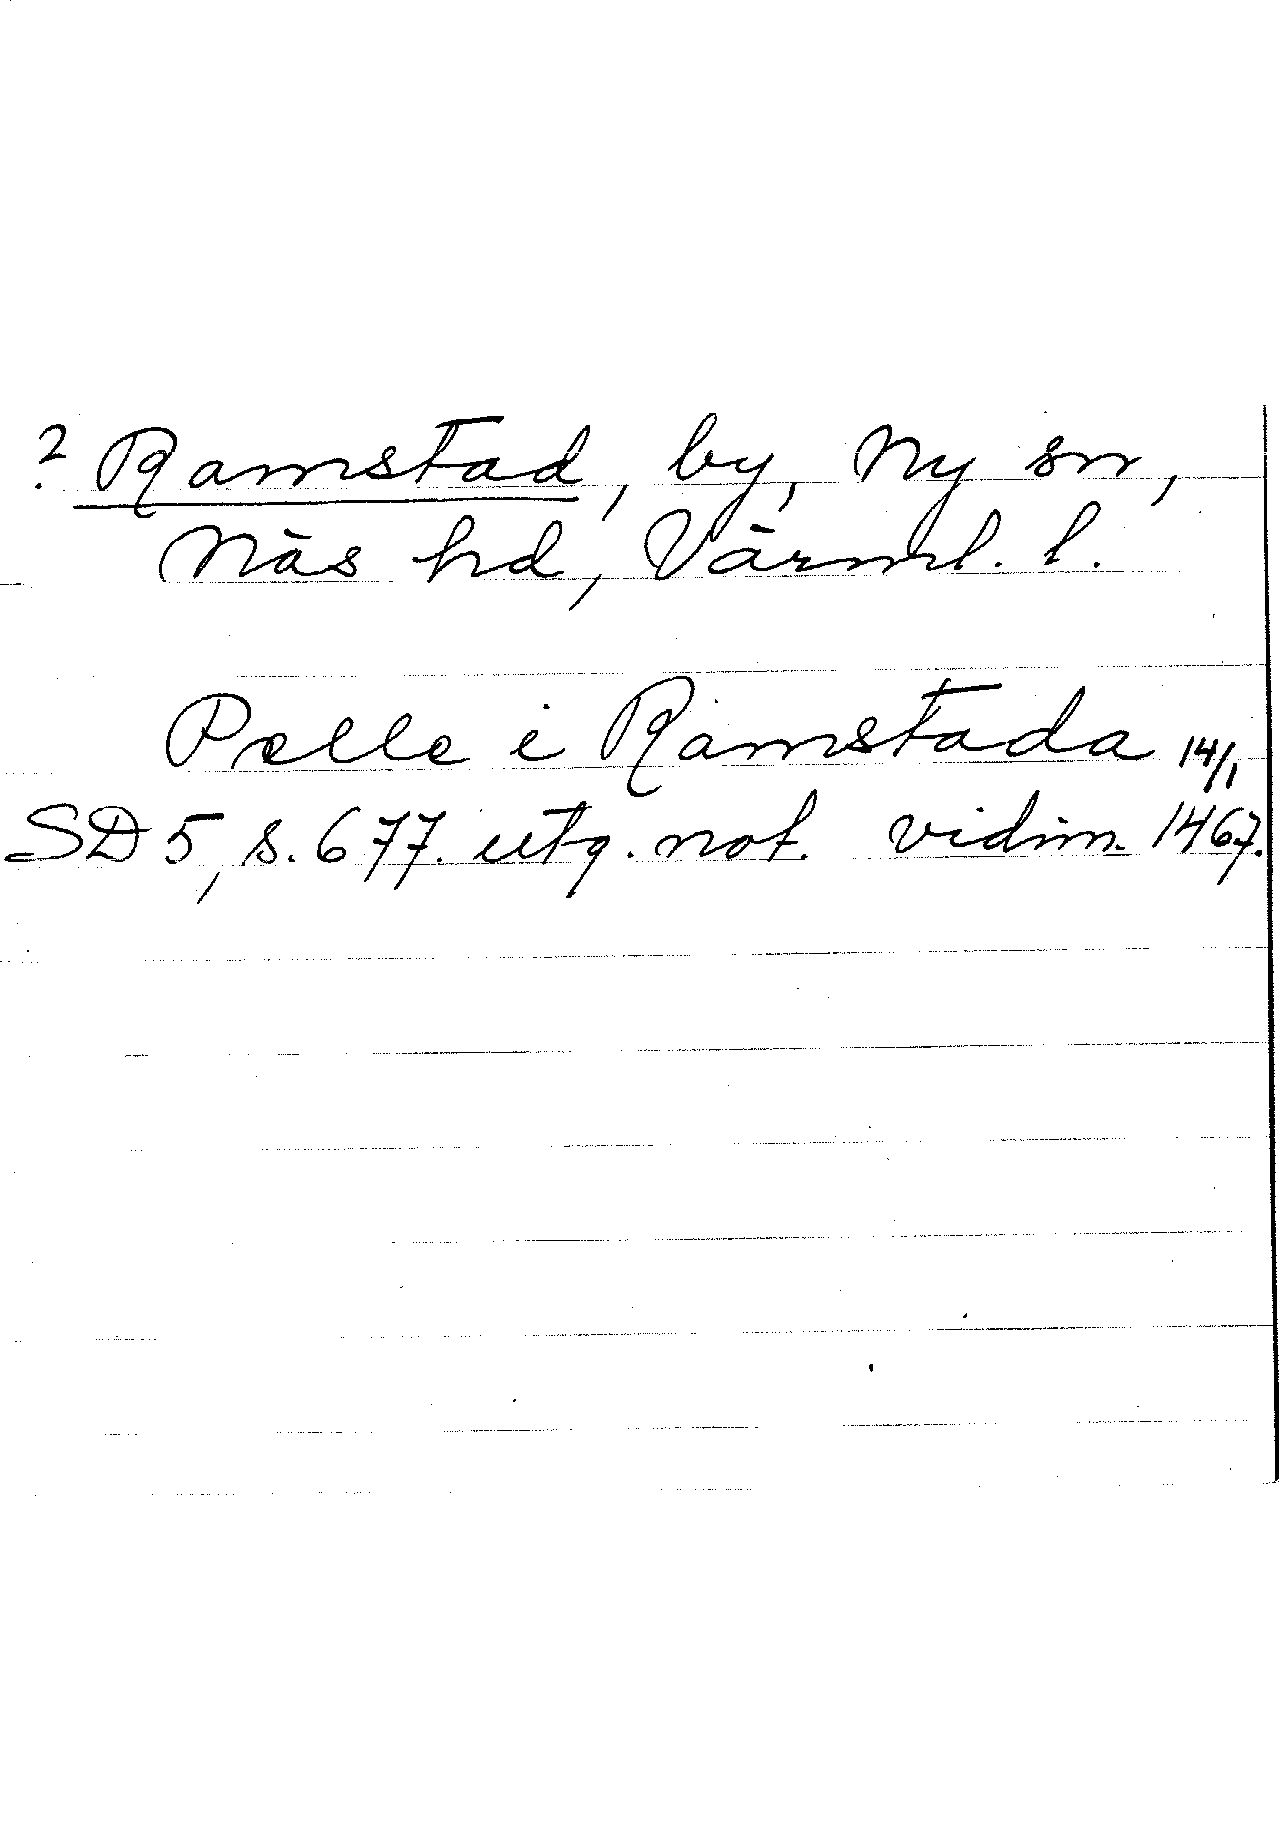 ? Ramstad, by, Ny sn,
Näs hd, Värml. l.
Pelle i Ramstada 14/1
SD 5, s. 677. utg. not. vidim. 1467.